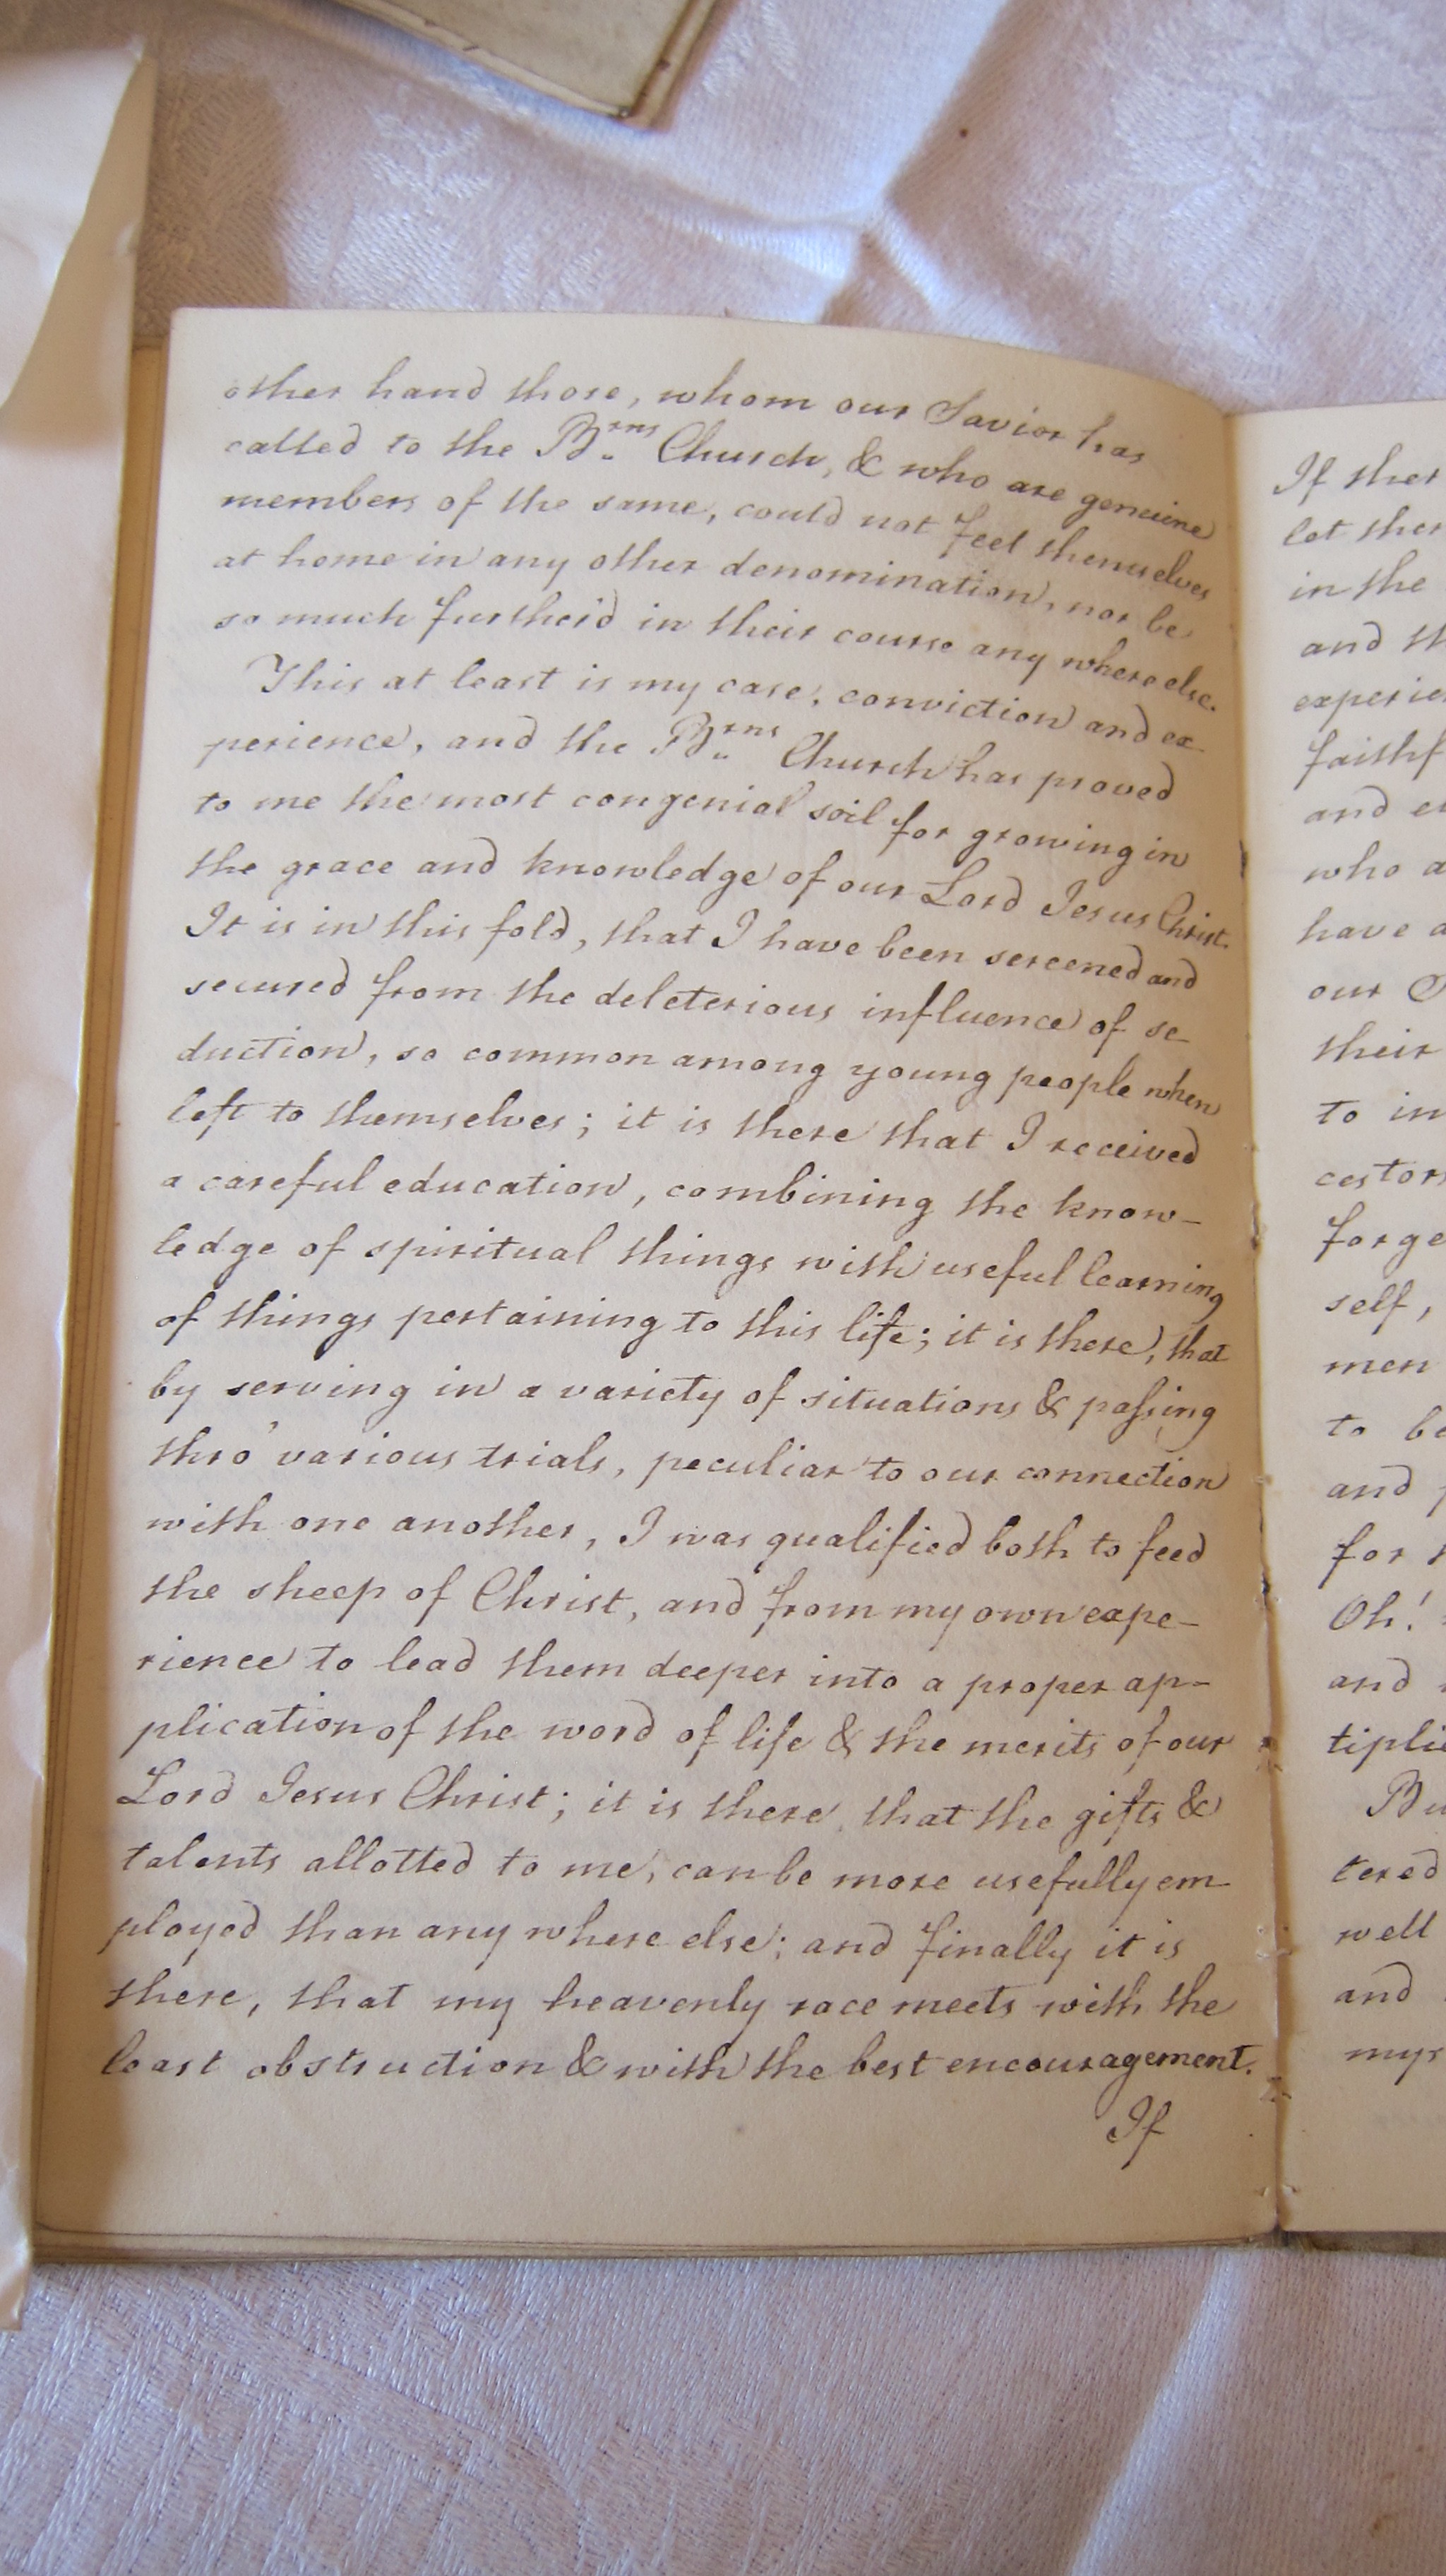 other hand those, whom our Savior has
called to the Brns Church, & who are genuine
members of the same, could not feel themselves
at home in any other denomination, nor be
so much further'd in their course any where else.
This at least is my case, conviction and ex-
perience, and the Brns Church has proved
to me the most congenial soil for growing in
the grace and knowledge of our Lord Jesus Christ.
It is in this fold, that I have been screened and
secured from the deleterious influence of se-
duction, so common among young people when
left to themselves; it is there that I received
a careful education, combining the know-
ledge of spiritual things with useful learning
of things pertaining to this life; it is there, that
by serving in a variety of situations & paſsing
thro' various trials, peculiar to our connection
with one another, I was qualified both to feed
the sheep of Christ, and from my own expe-
rience to lead them deeper into a proper ap-
plication of the word of life & the merits of our
Lord Jesus Christ; it is there, that the gifts &
talents allotted to me, can be more usefully em-
ployed than any where else; and finally it is
there, that my heavenly race meets with the
least obstruction & with the best encouragement.
If
If ther
let ther
in the
and th
experie
faithf
and e
who a
have a
our
their
to in
cestor
forge
self,
men
to be
and
for
Oh!
and
tiplie
Bu
tered
well
and
mys